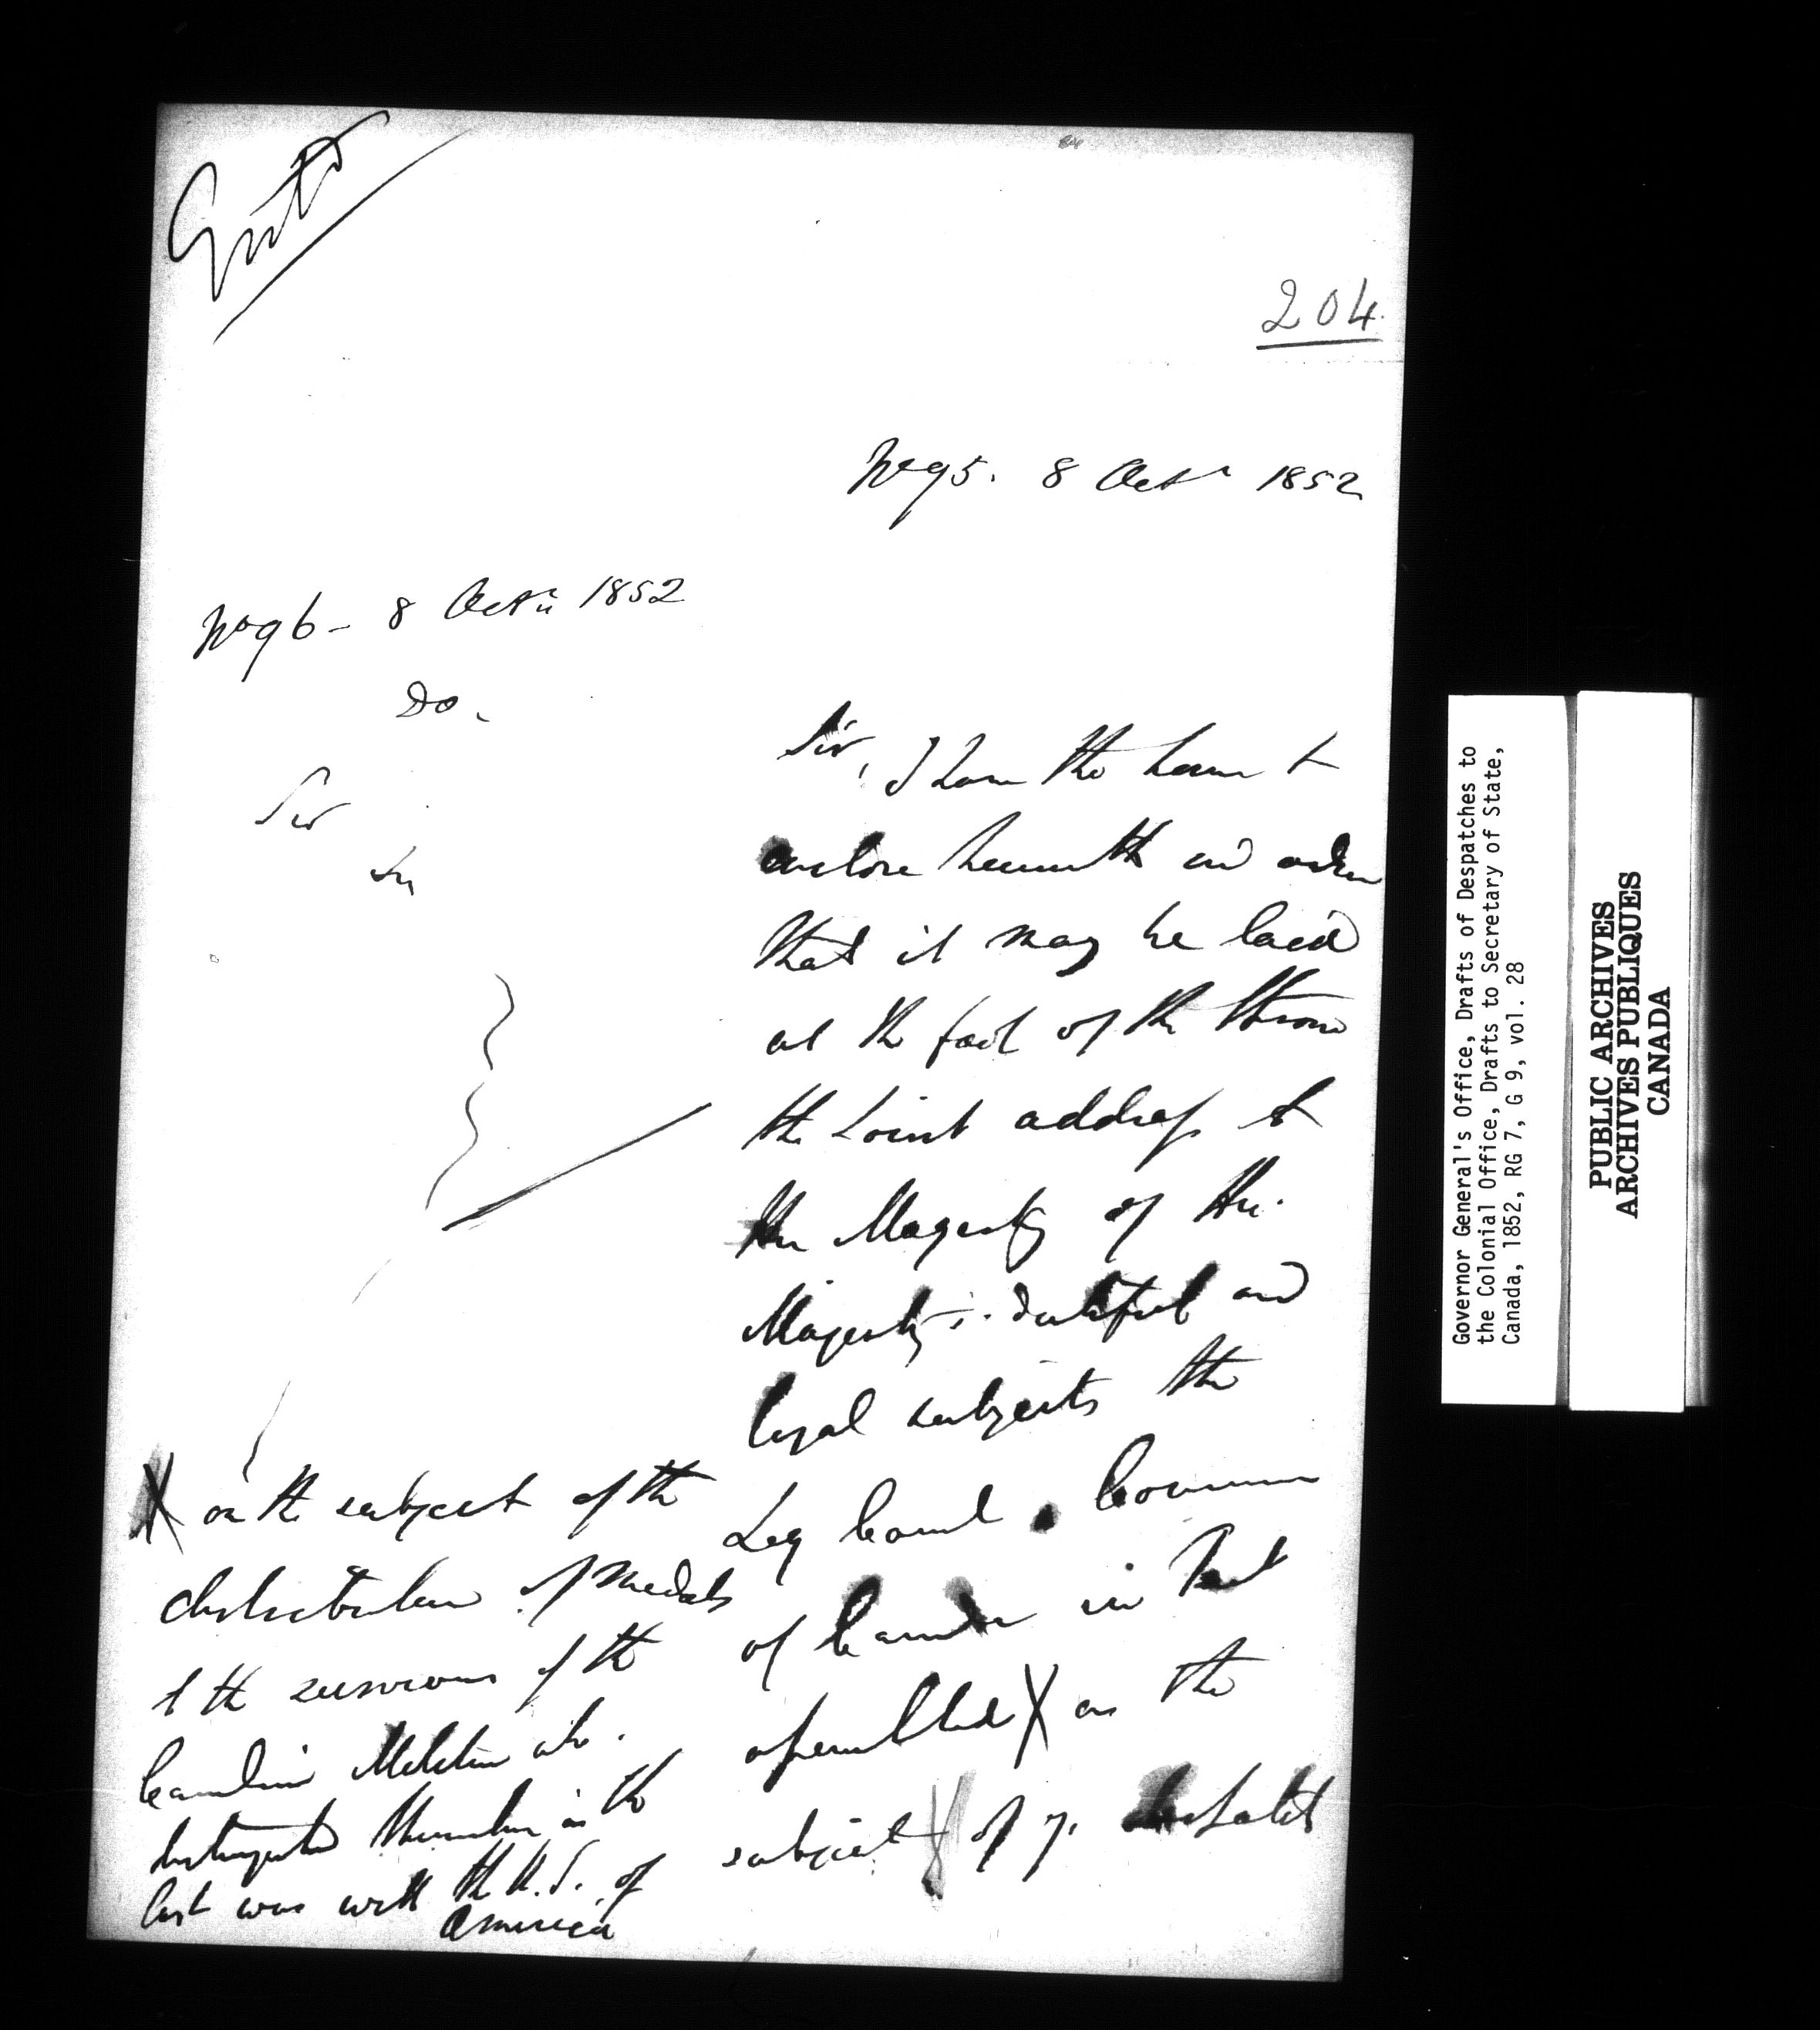 Entd
204.
No 95. 8 Octr 1852
No 96 - 8 Octr 1852
Do.
Sir
Sir, I have the honor to
enclose herewith in order
that it may be laid
at the foot of the throne
the Joint address to
Her Majesty of Her
Majesty's dutiful and
loyal subjects the
Leg Council Commons
of Canada in Parlt
assembled X on the
subject of yr
X on the subject of the
distribution of medals
to the survivors of the
Canadian Militia who
distinguished themselves in the
last war with the U.S. of
America
Governor General's Office, Drafts of Despatches to
the Colonial Office, Drafts to Secretary of State,
Canada, 1852, RG 7, G 9, vol. 28
PUBLIC ARCHIVES
ARCHIVES PUBLIQUES
CANADA